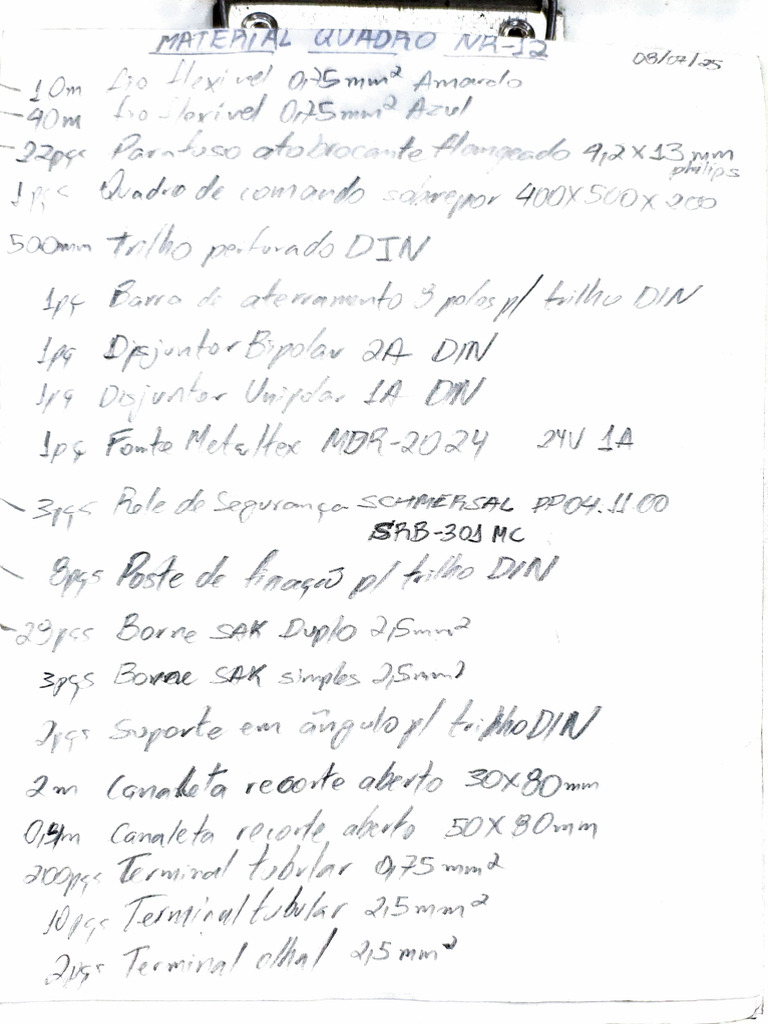 MATERIAL QUADRO NR-12
08/07/25
10m fio flexível 0,75mm² Amarelo
40m fio flexível 0,75mm² Azul
22pçs Parafuso atobrocante flangeado 4,2X13mm
philips
1pçs Quadro de comando sobrepor 400X500X200
500mm Trilho perfurado DIN
1pç Barra de aterramento 9 polos p/ trilho DIN
1pç Disjuntor Bipolar 2A DIN
1pç Disjuntor Unipolar 1A DIN
1pç Fonte Metaltex MDR-2024 24V 1A
3pçs Rele de Segurança SCHMERSAL PP04.11.00
SRB-301 MC
8pçs Poste de finação p/ trilho DIN
29pçs Borne SAK Duplo 2,5mm²
3pçs Borne SAK simples 2,5mm²
2pçs Suporte em ângulo p/ trilho DIN
2m Canaleta recorte aberto 30X80mm
Canaleta recorte aberto 50X80mm
200pçs Terminal tubular 0,75mm²
10pçs Terminal tubular 2,5mm²
2pçs Terminal olhal 2,5mm²